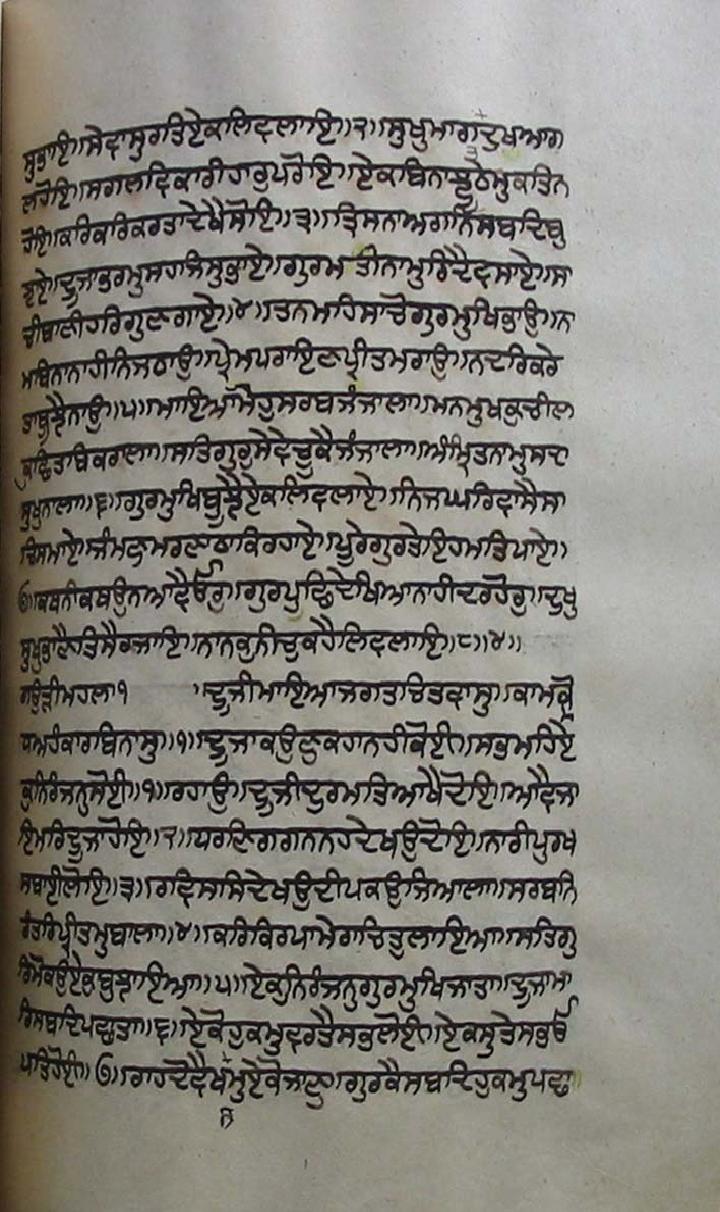 ਸੁਭਾਇ॥ਸੇਵਾਸੁਰਤਿਏਕਲਿਵਲਾਇ॥੨॥ਸੁਖੁਮਾਗਦੁਖਆਗ
ਲਹੋਇ॥ਸਗਲਵਿਕਾਰੀਹਾਰੁਪਰੋਇ॥ਏਕਬਿਨਾਝੂਠੇਮੁਕਤਿਨ
ਹੋਇ॥ਕਰਿਕਰਿਕਰਤਾਦੇਖੈਸੋਇ॥੩॥ਤ੍ਰਿਸਨਾਅਗਨਿਸਬਦਿਬੁ
ਝਾਏ॥ਦੂਜਾਭਰਮੁਸਹਜਿਸੁਭਾਏ॥ਗੁਰਮਤੀਨਾਮੁਰਿਦੈਵਸਾਏ॥ਸਾ
ਚੀਬਾਣੀਹਰਿਗੁਣਗਾਏ॥੪॥ਤਨਮਹਿਸਾਚੋਗੁਰਮੁਖਿਭਾਉ॥ਨਾ
ਮਬਿਨਾਨਾਹੀਨਿਜਠਾਉ॥ਪ੍ਰੇਮਪਰਾਇਣਪ੍ਰੀਤਮਰਾਉ॥ਨਦਰਿਕਰੇ
ਤਾਬੂਝੈਨਾਉ॥੫॥ਮਾਇਆਮੋਹੁਸਰਬਜੰਜਾਲਾ॥ਮਨਮੁਖਕੁਚੀਲ
ਕੁਛਿਤਬਿਕਰਾਲਾ॥ਸਤਿਗੁਰੁਸੇਵੇਚੂਕੈਜੰਜਾਲਾ॥ਅੰਮ੍ਰਿਤਨਾਮੁਸਦਾ
ਸੁਖੁਨਾਲਾ॥੬॥ਗੁਰਮੁਖਿਬੂਝੈਏਕਲਿਵਲਾਏ॥ਨਿਜਘਰਿਵਾਸੈਸਾ
ਚਿਸਮਾਏ॥ਜੰਮਣੁਮਰਣਾਠਾਕਿਰਹਾਏ॥ਪੂਰੇਗੁਰਤੇਇਹਮਤਿਪਾਏ॥
੭॥ਕਥਨੀਕਥਉਨਆਵੈਓਰੁ॥ਗੁਰਪੁਛਿਦੇਖਿਆਨਾਹੀਦਰਹੋਰੁ॥ਦੁਖੁ
ਸੁਖੁਭਾਣੈਤਿਸੈਰਜਾਇ॥ਨਾਨਕੁਨੀਚੁਕਹੈਲਿਵਲਾਇ॥੮॥੪॥
ਗਉੜੀਮਹਲਾ੧ ॥ਦੂਜੀਮਾਇਆਜਗਤਚਿਤਵਾਸੁ॥ਕਾਮਕ੍ਰੋ
ਧਅਹੰਕਾਰਬਿਨਾਸੁ॥੧॥ਦੂਜਾਕਉਣੁਕਹਾਨਹੀਕੋਈ॥ਸਭਮਹਿਏ
ਕੁਨਿਰੰਜਨੁਸੋਈ॥੧॥ਰਹਾਉ॥ਦੂਜੀਦੁਰਮਤਿਆਖੈਦੋਇ॥ਆਵੈਜਾ
ਇਮਰਿਦੂਜਾਹੋਇ॥੨॥ਧਰਣਿਗਗਨਨਹਦੇਖਉਦੋਇ॥ਨਾਰੀਪੁਰਖ
ਸਬਾਈਲੋਇ॥੩॥ਰਵਿਸਸਿਦੇਖਉਦੀਪਕਉਜਿਆਲਾ॥ਸਰਬਨਿ
ਰੰਤਰਿਪ੍ਰੀਤਮੁਬਾਲਾ॥੪॥ਕਰਿਕਿਰਪਾਮੇਰਾਚਿਤੁਲਾਇਆ॥ਸਤਿਗੁ
ਰਿਮੋਕਉਏਕੁਬੁਝਾਇਆ॥੫॥ਏਕੁਨਿਰੰਜਨੁਗੁਰਮੁਖਿਜਾਤਾ॥ਦੂਜਾਮਾ
ਰਿਸਬਦਿਪਛਾਤਾ॥੬॥ਏਕੋਹੁਕਮੁਵਰਤੈਸਭਲੋਈ॥ਏਕਸੁਤੇਸਭਓ
ਪਤਿਹੋਈ॥੭॥ਰਾਹਦੋਵੈਖਸਮੁਏਕੋਜਾਣੁ॥ਗੁਰਕੈਸਬਦਿਹੁਕਮੁਪਛਾ